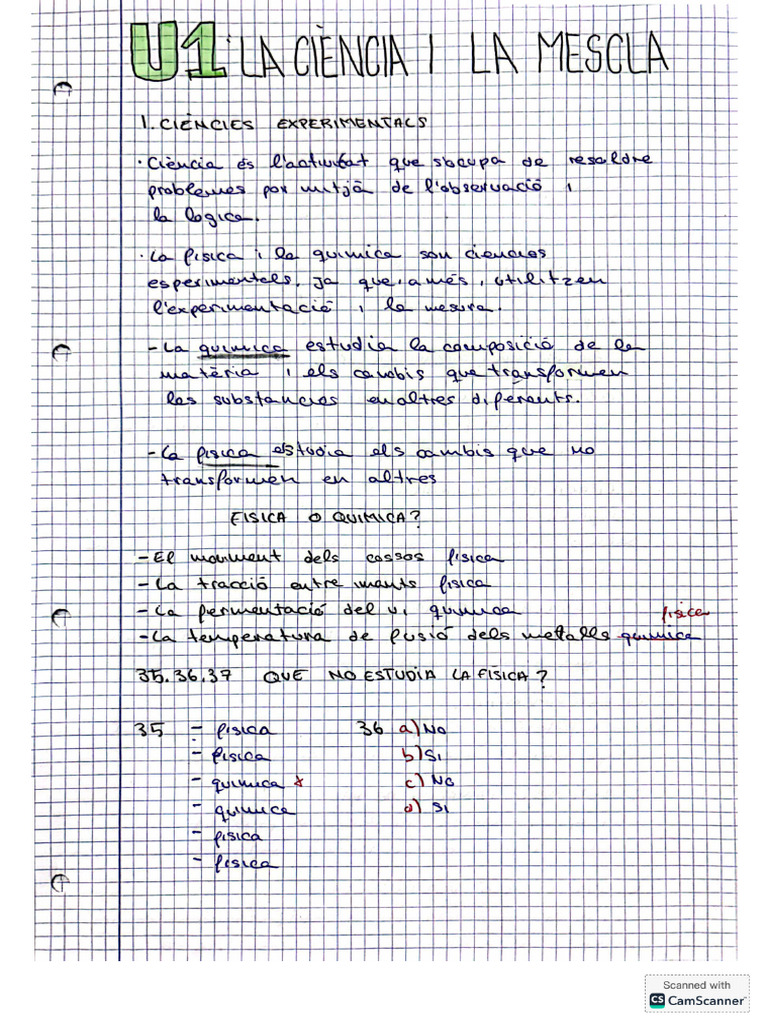 U1: LA CIÈNCIA I LA MESCLA
1. CIÈNCIES EXPERIMENTALS
· Ciència és l'activitat que s'ocupa de resoldre
problemes por mitjà de l'observació i
la logica.
· La física i la química son ciencies
esperimentals, ja que, a més, utilitzen
l'experimentació i la mesura.
- La química estudia la composició de la
matèria i els canbis que transformen
les substancies en altres diferents.
- La fisica estudia els cambis que no
transformen en altres
FISICA O QUIMICA?
- El moviment dels cossos fisica
- La tracció entre imants fisica
- La fermentació del vi quimica fisica
- La temperatura de fusió dels metalls quimica
35.36.37 QUE NO ESTUDIA LA FÍSICA?
35 - fisica 36 a) No
- fisica b) Si
- quimica x c) No
- quimica d) Si
- fisica
- fisica
Scanned with
CS CamScanner